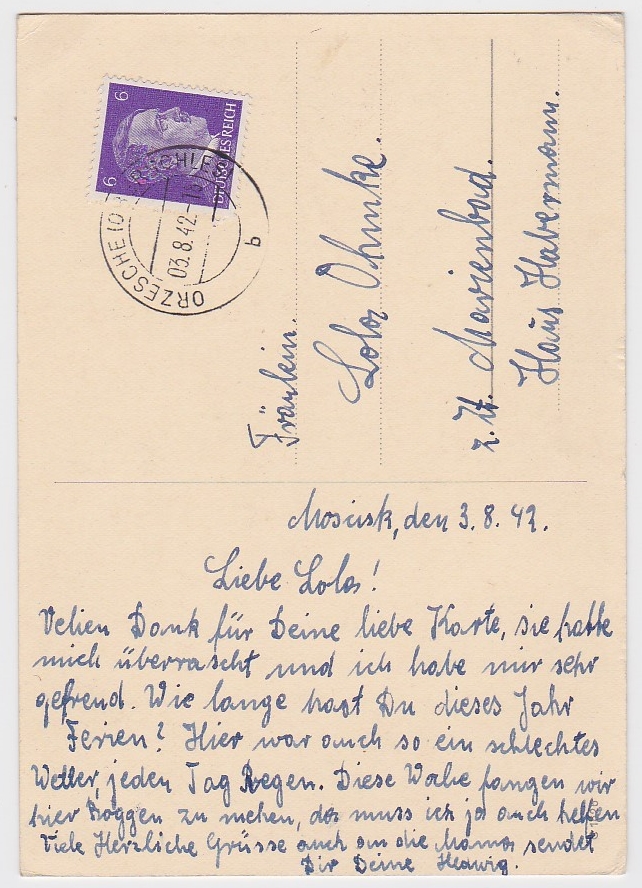 6
6
DEUTSCHES REICH
ORZESCHE (OBERSCHLES)
03.8.42
b
Fräulein.
Lola Ohmke.
z. Zt. Marienbad.
Haus Habermann.
Moscisk, den 3.8.42.
Liebe Lola!
Velien Dank für Deine liebe Karte, sie hatte
mich überrascht und ich habe mir sehr
gefreud. Wie lange hast Du dieses Jahr
Ferien? Hier war auch so ein schlechtes
Wetter, jeden Tag Regen. Diese Woche fangen wir
hier Roggen zu mehen, da muss ich ja auch helfen
Viele Herzliche Grüsse auch an die Mama sendet
Dir Deine Hedwig.